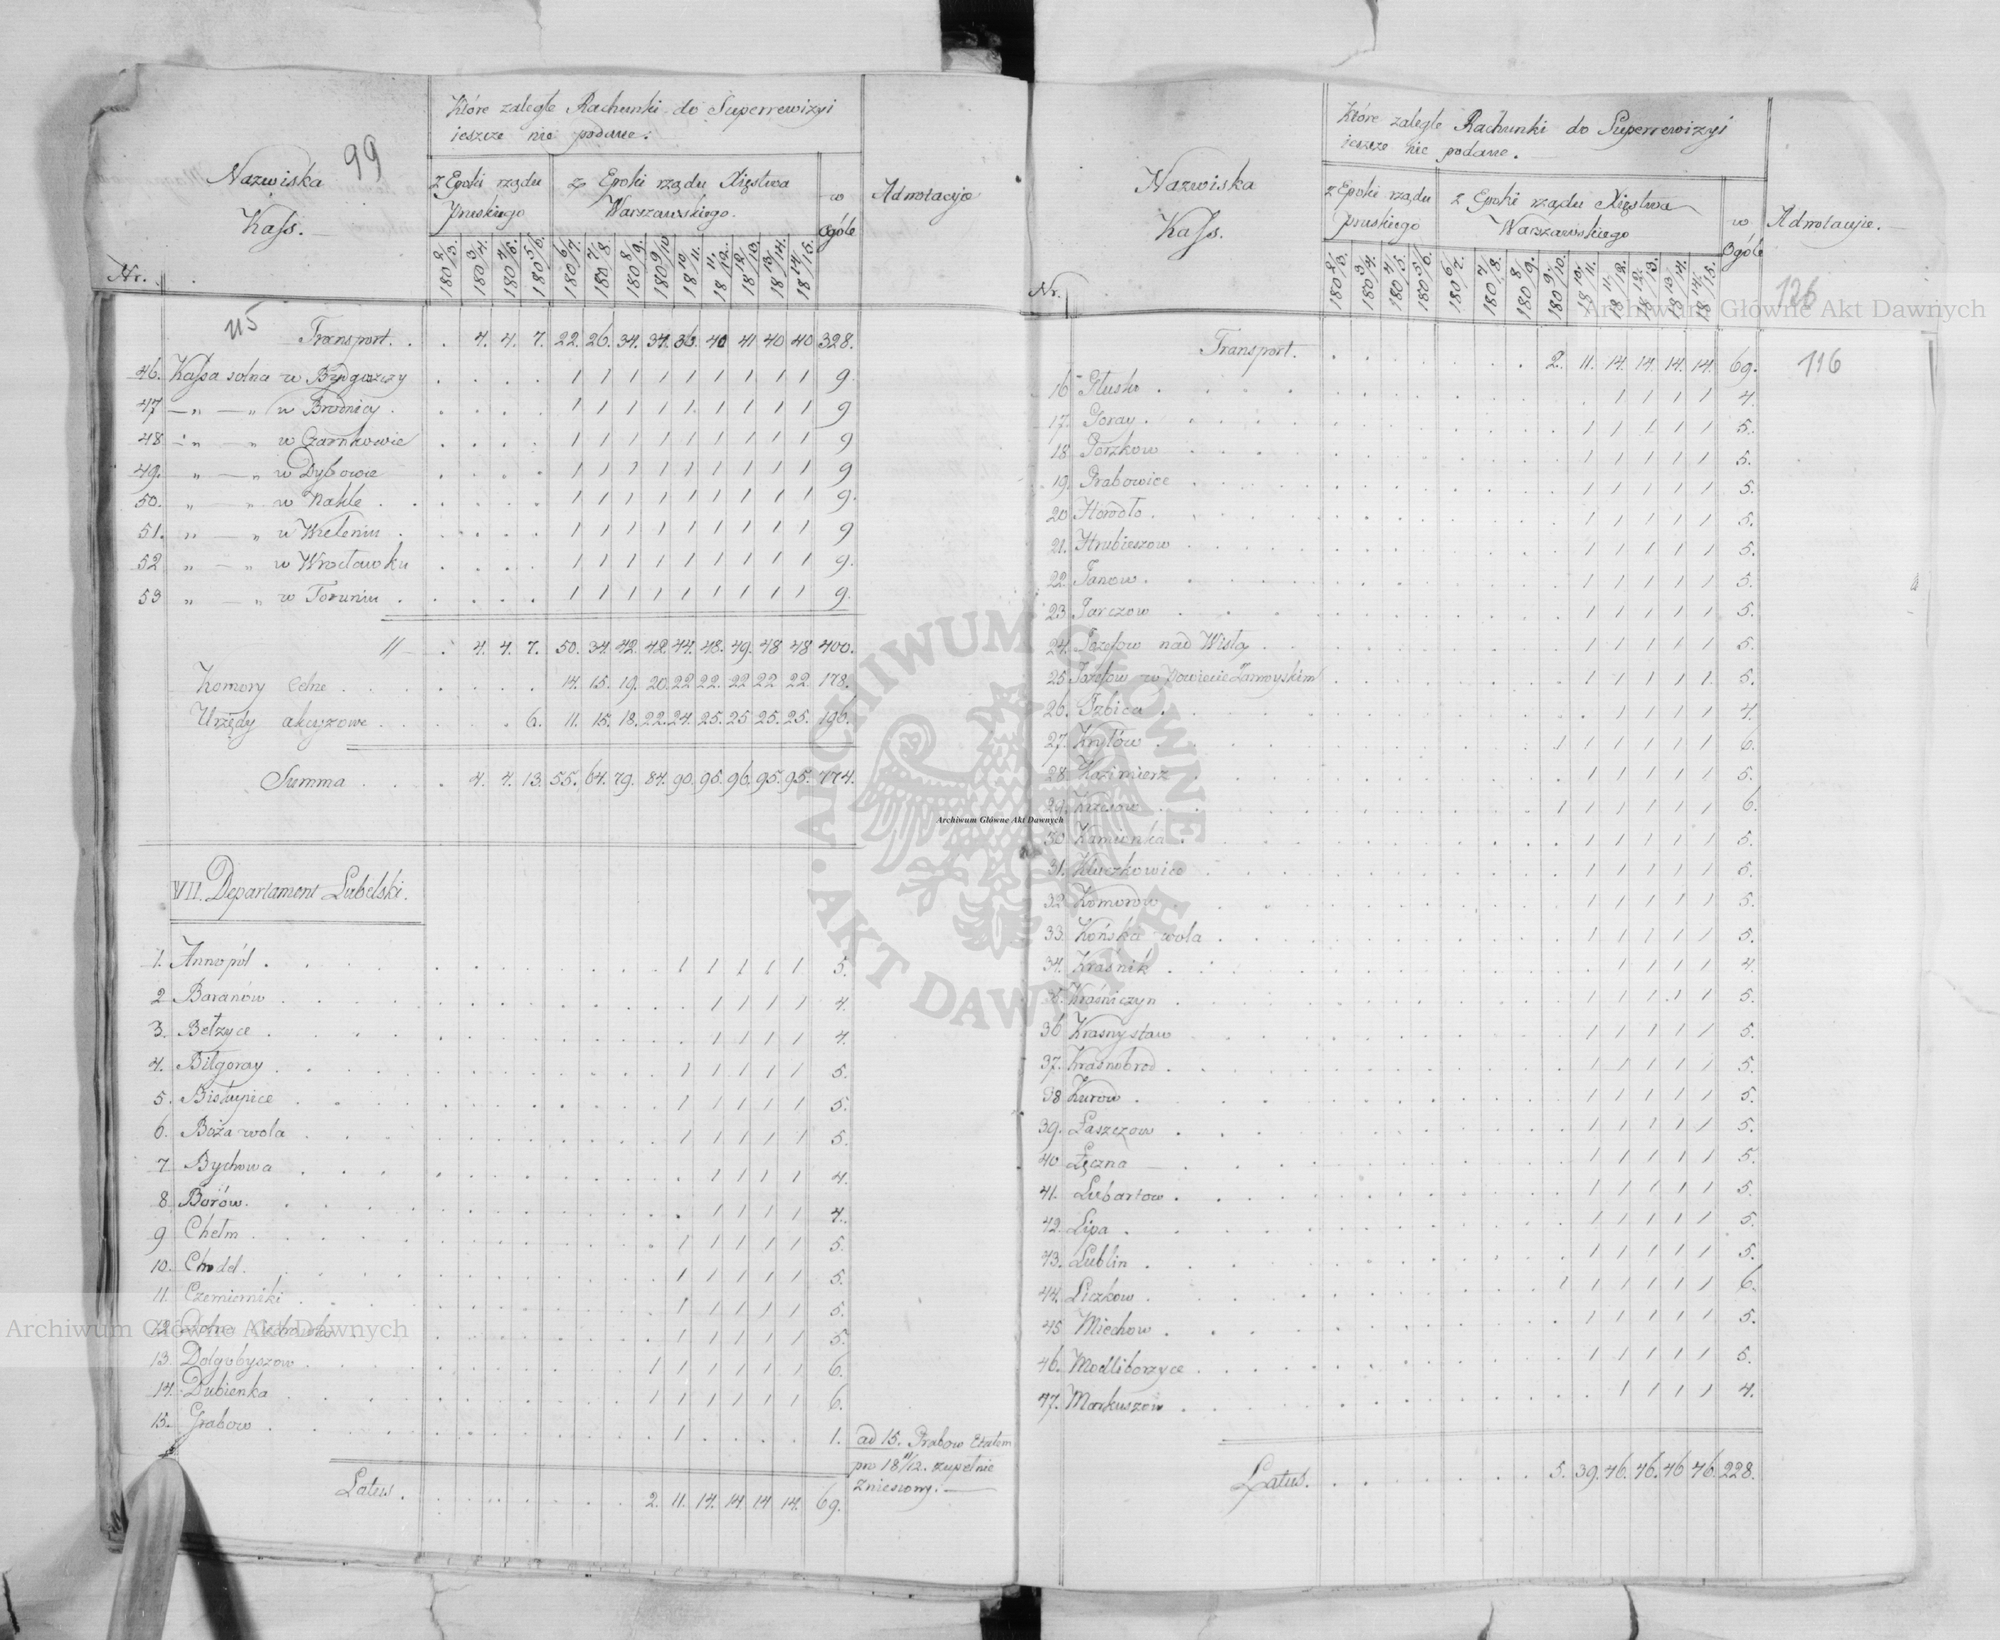 99
Nazwiska
Kass.
Nr.
Które zaległe Rachunki do Superrewizyi
ieszcze nie podane.
z Epoki rządu
Pruskiego
z Epoki rządu Xięstwa
Warszawskiego.
w
Ogóle
Adnotacyje
180 2/3. 180 3/4. 180 4/5. 180 5/6. 180 6/7. 180 7/8. 180 8/9. 180 9/10. 18 10/11. 18 11/12. 18 12/13. 18 13/14. 18 14/15.
115
Transport. . . 4. 4. 7. 22. 26. 34. 34. 36. 40 41 40 40 328.
46. Kassa solna w Bydgoszczy . . . . 1 1 1 1 1 1 1 1 1 9.
47 — „ — „ w Brodnicy . . . . . 1 1 1 1 1 1 1 1 1 9
48 — „ — „ w Czarnkowie . . . . 1 1 1 1 1 1 1 1 1 9
49. „ — „ w Dybowie . . . . 1 1 1 1 1 1 1 1 1 9
50. „ — „ w Nakle . . . . . 1 1 1 1 1 1 1 1 1 9.
51. „ — „ w Wieleniu . . . . . 1 1 1 1 1 1 1 1 1 9
52 „ — „ w Wrocławku . . . . 1 1 1 1 1 1 1 1 1 9.
53 „ — „ w Toruniu . . . . . 1 1 1 1 1 1 1 1 1 9.
// — . . 4. 4. 7. 50. 34. 42. 42. 44. 48. 49. 48 48 400.
Komory Celne . . . . . . 14. 15. 19. 20. 22 22. 22 22 22. 178.
Urzędy akcyzowe . . . . 6. 11. 15. 18. 22. 24. 25. 25 25. 25. 196.
Summa . . . 4. 4. 13. 55. 64. 79. 84. 90. 95. 96. 95. 95. 774.
VII. Departament Lubelski.
1. Annopól . . . . 1 1 1 1 1 5.
2 Baranów . . . . 1 1 1 1 4.
3. Bełzyce . . . . 1 1 1 1 4.
4. Biłgoray . . . . 1 1 1 1 1 5.
5. Biskupice . . . . 1 1 1 1 1 5.
6. Boża wola . . . . 1 1 1 1 1 5.
7 Bychowa . . . . 1 1 1 1 4.
8. Borów. . . . . 1 1 1 1 4.
9 Chełm . . . . 1 1 1 1 1 5.
10. Chodel. . . . . 1 1 1 1 1 5.
11. Czemierniki . . . . 1 1 1 1 1 5.
12 . . . . 1 1 1 1 1 5.
13. Dołgobyszow . . . . 1 1 1 1 1 1 6.
14. Dubienka . . . . 1 1 1 1 1 1 6.
15. Grabow . . . . 1 . . . . 1.
ad 15. Grabow Etatem
pro 18 11/12. zupełnie
zniesiony. —
Latus. . . . . 2. 11. 14. 14. 14 14. 69.
Nazwiska
Kass.
Nr.
Które zaległe Rachunki do Superrewizyi
ieszcze nie podane. —
z Epoki rządu
pruskiego
z Epoki rządu Xięstwa
Warszawskiego
w
Ogóle
Adnotacyje. —
180 2/3. 180 3/4. 180 4/5. 180 5/6. 180 6/7. 180 7/8. 180 8/9. 180 9/10. 18 10/11. 18 11/12. 18 12/13. 18 13/14. 18 14/15.
126
116
Transport. . . . . 2. 11. 14. 14. 14. 14. 69.
16 Głusk . . . . 1 1 1 1 4.
17. Goray . . . . 1 1 1 1 1 5.
18 Gorzkow . . . . 1 1 1 1 1 5.
19. Grabowice . . . . 1 1 1 1 1 5.
20 Horodło . . . . 1 1 1 1 1 5.
21. Hrubieszow . . . . 1 1 1 1 1 5.
22. Janow . . . . 1 1 1 1 1 5.
23 Parczow . . . . 1 1 1 1 1 5.
24. Jozefow nad Wisłą . . . . 1 1 1 1 1 5.
25 Jozefow w Powiecie Zamoyskim . . . . 1 1 1 1 1 5.
26. Izbica . . . . 1 1 1 1 4.
27. Kryłów . . . . 1 1 1 1 1 1 6.
28. Kazimierz . . . . 1 1 1 1 1 5.
29. Krzesow . . . . 1 1 1 1 1 1 6.
30 Kamionka . . . . 1 1 1 1 1 5.
31. Kluczkowice . . . . 1 1 1 1 1 5.
32 Komorow . . . . 1 1 1 1 1 5.
33. Końska wola . . . . 1 1 1 1 1 5.
34. Kraśnik . . . . 1 1 1 1 4.
35. Kraśniczyn . . . . 1 1 1 1 1 5.
36 Krasnystaw . . . . 1 1 1 1 1 5.
37. Krasnobrod . . . . 1 1 1 1 1 5.
38 Kurow . . . . 1 1 1 1 1 5.
39. Łaszczow . . . . 1 1 1 1 1 5.
40 Łęczna — . . . . 1 1 1 1 1 5.
41. Lubartow . . . . 1 1 1 1 1 5.
42. Lipa . . . . 1 1 1 1 1 5.
43. Lublin . . . . 1 1 1 1 1 5.
44. Liczkow . . . . 1 1 1 1 1 1 6.
45 Miechow . . . . 1 1 1 1 1 5.
46. Modliborzyce . . . . 1 1 1 1 1 5.
47. Markuszow . . . . 1 1 1 1 4.
Latus. . . . . 5. 39. 46. 46. 46 46. 228.
Archiwum Główne Akt Dawnych
Archiwum Główne Akt Dawnych
Archiwum Główne Akt Dawnych
ARCHIWUM GŁÓWNE · AKT DAWNYCH ·